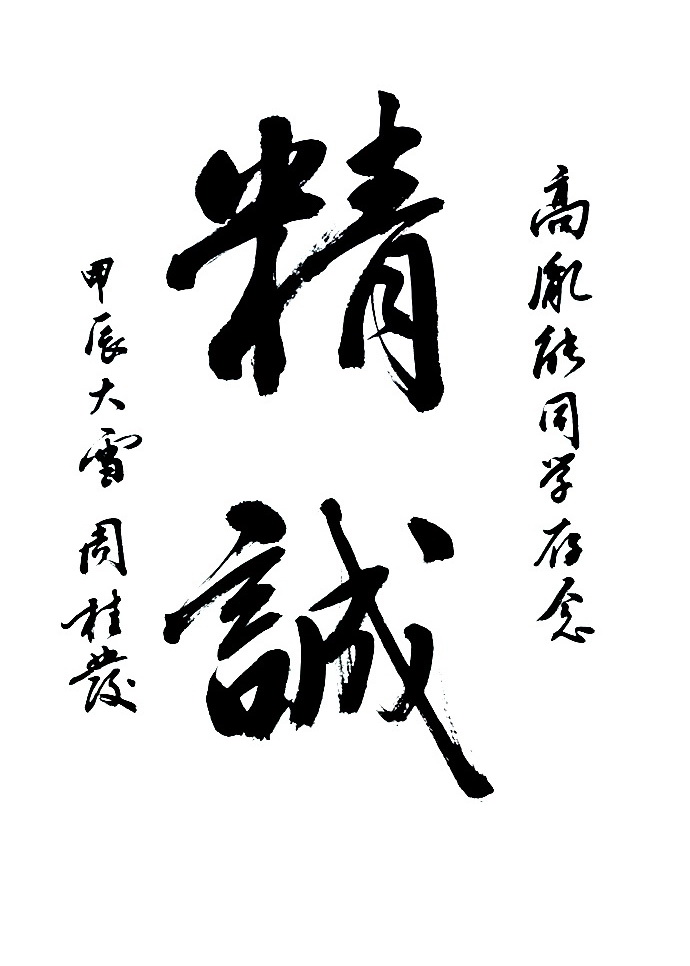 高胤能同学存念
精誠
甲辰大雪 周桂發